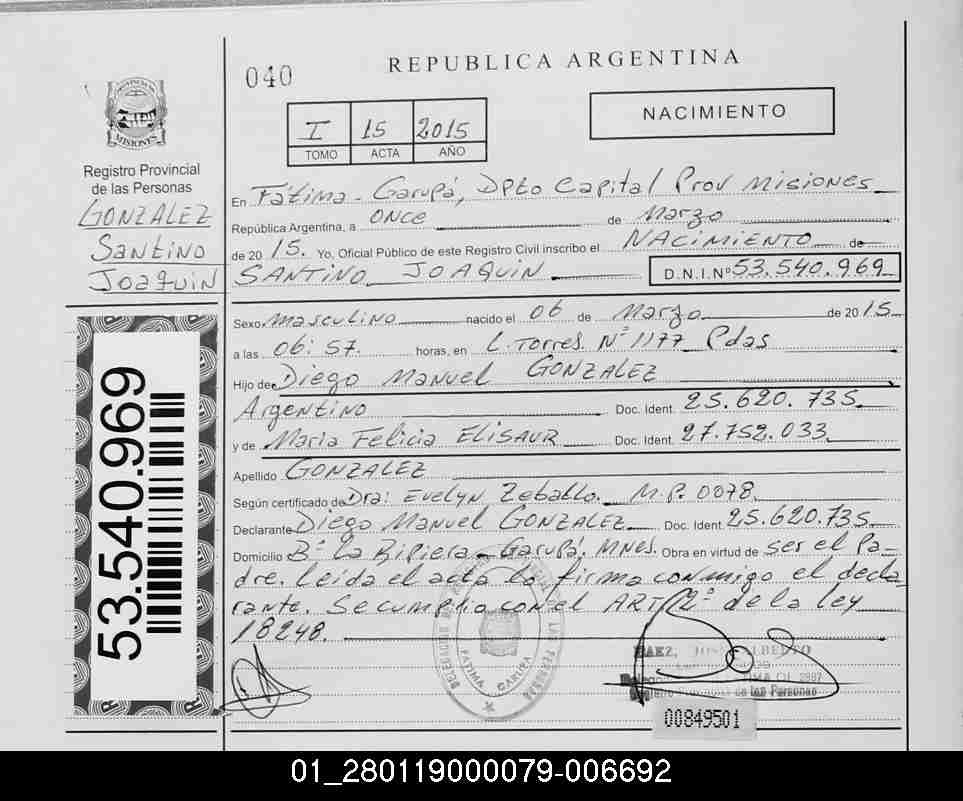 040
REPUBLICA ARGENTINA
PROVINCIA DE
MISIONES
I 15 2015
TOMO ACTA AÑO
NACIMIENTO
Registro Provincial
de las Personas
GONZALEZ
Santino
Joaquin
En Fátima - Garupá, Dpto Capital Prov Misiones
República Argentina, a once de Marzo
de 2015. Yo, Oficial Público de este Registro Civil inscribo el NACIMIENTO de
SANTINO JOAQUIN D.N.I.Nº 53.540.969
Sexo masculino nacido el 06 de Marzo de 2015
a las 06:57 horas, en L. Torres Nº 1177 Pdas
Hijo de Diego Manuel GONZALEZ
Argentino Doc. Ident. 25.620.735
y de Maria Felicia ELISAUR Doc. Ident. 27.752.033
Apellido GONZALEZ
Según certificado de Dra: Evelyn Zeballo. M.P. 0078
Declarante Diego Manuel GONZALEZ Doc. Ident. 25.620.735
Domicilio Bº La Ripiera - Garupá. Mnes. Obra en virtud de ser el Pa-
dre. Leída el acta la firma conmigo el decla
rante. Se cumplio con el ART 2º de la ley
18248.
53.540.969
FATIMA GARUPA
BAEZ, JOSE ALBERTO
de las Personas
00849501
01_280119000079-006692